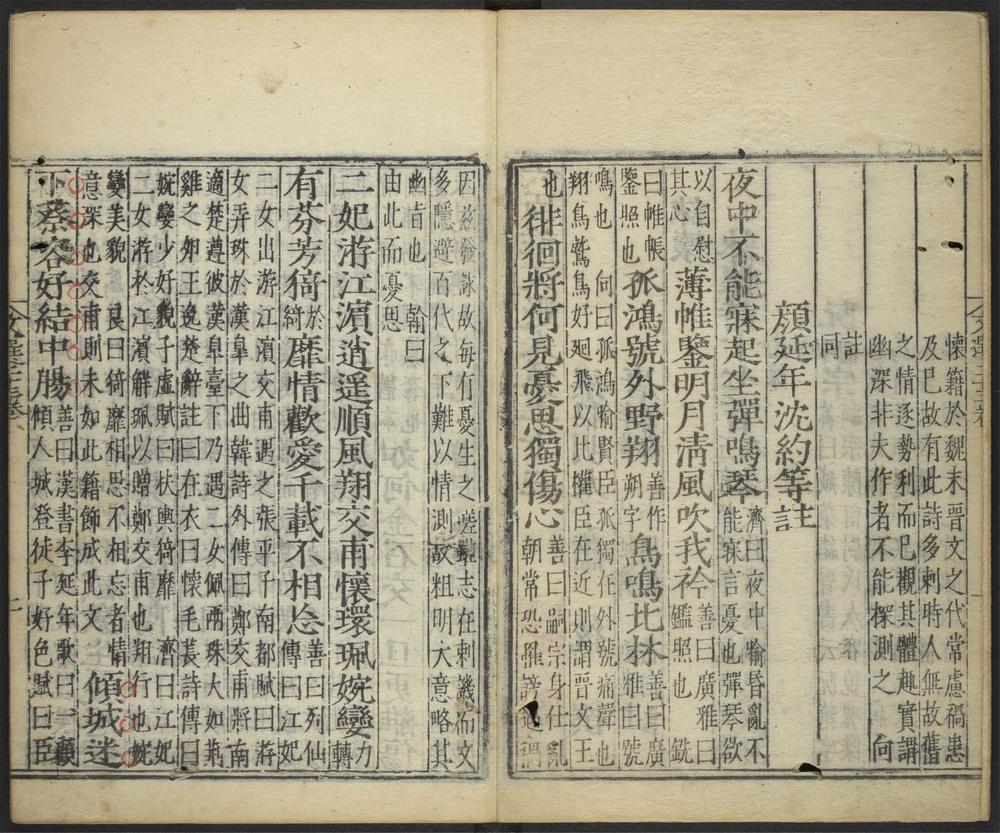 懷籍於魏末晉文之代常慮禍患
及巳故有此詩多刺時人無故舊
之情逐勢利而已觀其體趣實謂
幽深非夫作者不能探測之 向
註
同
顏延年沈約等註
夜中不能寐起坐彈鳴琴濟曰夜中喻昏亂不
能寐言憂也彈琴欲
以自慰
其心薄帷鑒明月清風吹我衿善曰廣雅曰
鑑照也 銑
曰帷帳
鑒照也孤鴻號外野翔善作
朔字鳥鳴北林善曰廣
雅曰號
鳴也 向曰孤鴻喻賢臣孤獨在外號痛聲也
翔鳥鷙鳥好廻飛以比權臣在近則謂晉文王
也徘徊將何見憂思獨傷心善曰嗣宗身仕亂
朝常恐罹謗遇禍
因玆發詠故每有憂生之嗟雖志在刺譏而文
多隱避百代之下難以情測故粗明大意略其
幽旨也 翰曰
由此而憂思
二妃游江濵逍遥順風翔交甫懷環珮婉孌力
轉
有芬芳猗於
綺靡情歡愛千載不相忘善曰列仙
傳曰江妃
二女出游江濵交甫遇之張平子南都賦曰游
女弄珠於漢皐之曲韓詩外傳曰鄭交甫將南
適楚遵彼漢皐臺下乃遇二女佩兩珠大如荆
雞之卵王逸楚辭註曰在衣曰懷毛萇詩傳曰
婉孌少好貌子虛賦曰扶輿猗靡 濟曰江妃
二女游於江濵解珮以贈鄭交甫也翔行也婉
孌美貌 良曰猗靡相思不相忘者情
意深也交甫則未如此籍飾成此文傾城迷
下蔡容好結中腸善曰漢書李延年歌曰一顧
傾人城登徒子好色賦曰臣